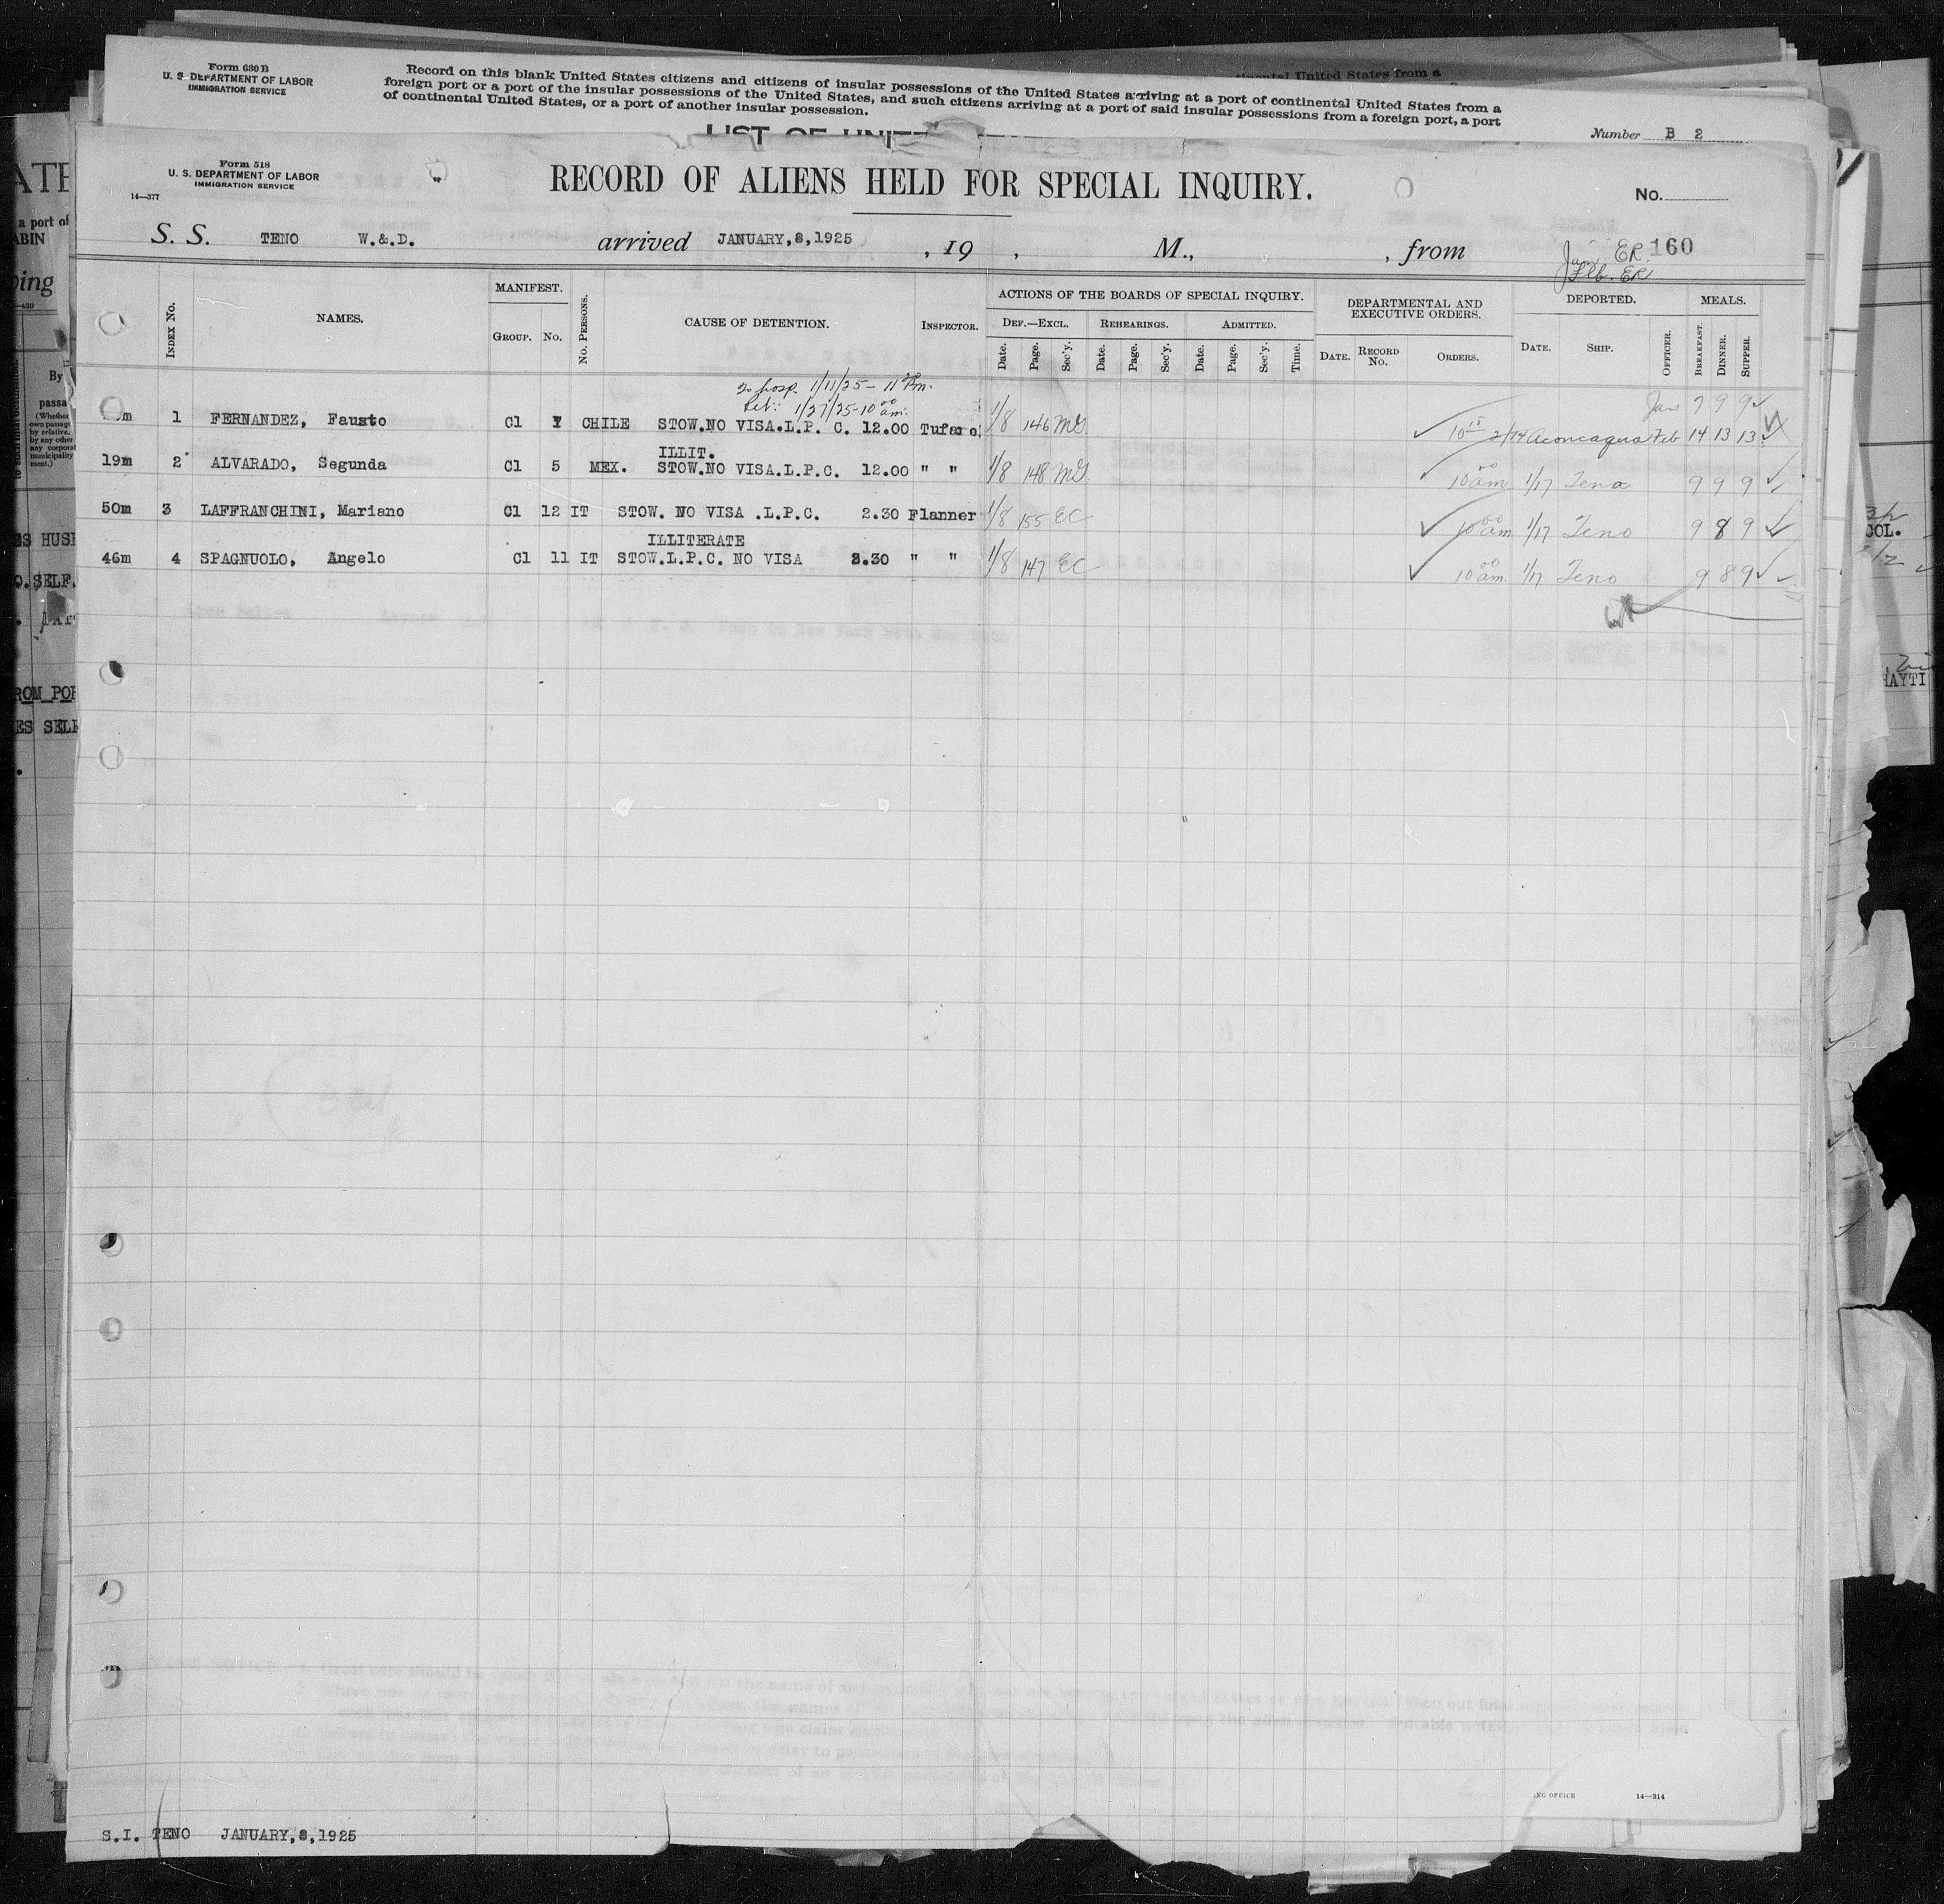 Form 630 B
U. S. DEPARTMENT OF LABOR
IMMIGRATION SERVICE
Record on this blank United States citizens and citizens of insular possessions of the United States arriving at a port of continental United States from a
foreign port or a port of the insular possessions of the United States, and such citizens arriving at a port of said insular possessions from a foreign port, a port
of continental United States, or a port of another insular possession.
Number B 2
Form 518
U. S. DEPARTMENT OF LABOR
IMMIGRATION SERVICE
14—377
RECORD OF ALIENS HELD FOR SPECIAL INQUIRY.
No.
S. S. TENO W.&D. arrived JANUARY,8,1925 , 19 , M., , from
Jan ER 160
Feb. ER
INDEX No. NAMES. MANIFEST. GROUP. No. No. PERSONS. CAUSE OF DETENTION. INSPECTOR. ACTIONS OF THE BOARDS OF SPECIAL INQUIRY. DEF.—EXCL. REHEARINGS. ADMITTED. Date. Page. Sec'y. Date. Page. Sec'y. Date. Page. Sec'y. Time. DEPARTMENTAL AND EXECUTIVE ORDERS. DATE. RECORD No. ORDERS. DEPORTED. DATE. SHIP. OFFICER. MEALS. BREAKFAST. DINNER. SUPPER.
To hosp. 1/11/25 – 11 Pm.
Ret: 1/27/25 – 10 00 am. Jan 7 9 9
m 1 FERNANDEZ, Fausto Cl CHILE STOW.NO VISA.L.P. C. 12.00 1/8 146 MG 10 15 2/14 Aconcagua Feb 14 13 13
ILLIT.
19m 2 ALVARADO, Segunda Cl 5 MEX. STOW.NO VISA.L.P.C. 12.00 " " 1/8 148 MG 10 00 am 1/17 Teno 9 9 9
50m 3 LAFFRANCHINI, Mariano Cl 12 IT STOW. NO VISA .L.P.C. 2.30 Flanner 1/8 155 EC 10 00 am 1/17 Teno 9 8 9
ILLITERATE
46m 4 SPAGNUOLO, Angelo Cl 11 IT STOW.L.P.C. NO VISA 2.30 " " 1/8 147 EC 10 00 am. 1/17 Teno 9 8 9
NG OFFICE 14—214
S.I. TENO JANUARY,8,1925